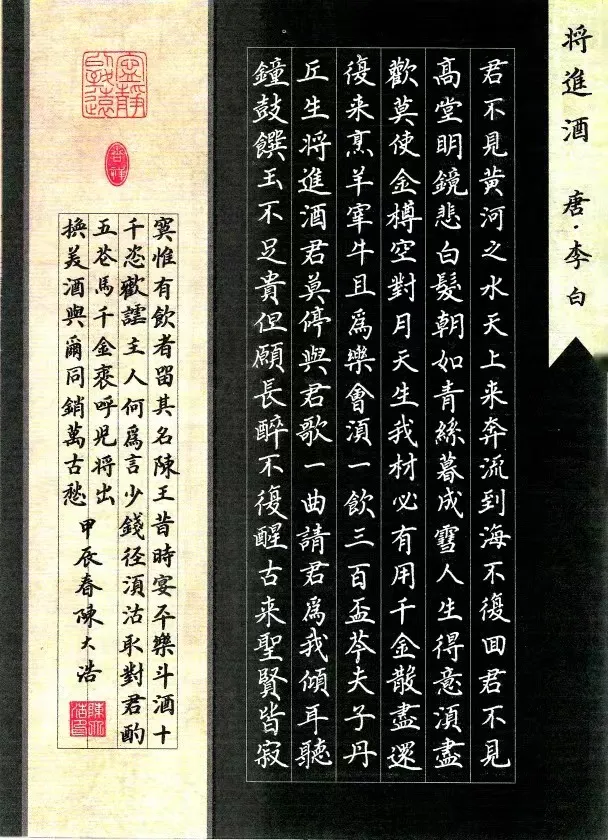 将進酒 唐·李白
君不見黄河之水天上来奔流到海不復回君不見
高堂明鏡悲白髮朝如青絲暮成雪人生得意湏盡
歡莫使金樽空對月天生我材必有用千金散盡還
復来烹羊宰牛且爲樂會湏一飲三百盃岑夫子丹
丘生将進酒君莫停與君歌一曲請君爲我傾耳聽
鐘鼓饌玉不足貴但願長醉不復醒古来聖賢皆寂
寞惟有飲者留其名陳王昔時宴平樂斗酒十
千恣歡謔主人何爲言少錢径湏沽取對君酌
五花馬千金裘呼児将出
換美酒與爾同銷萬古愁
甲辰春陳大浩
寧靜致遠